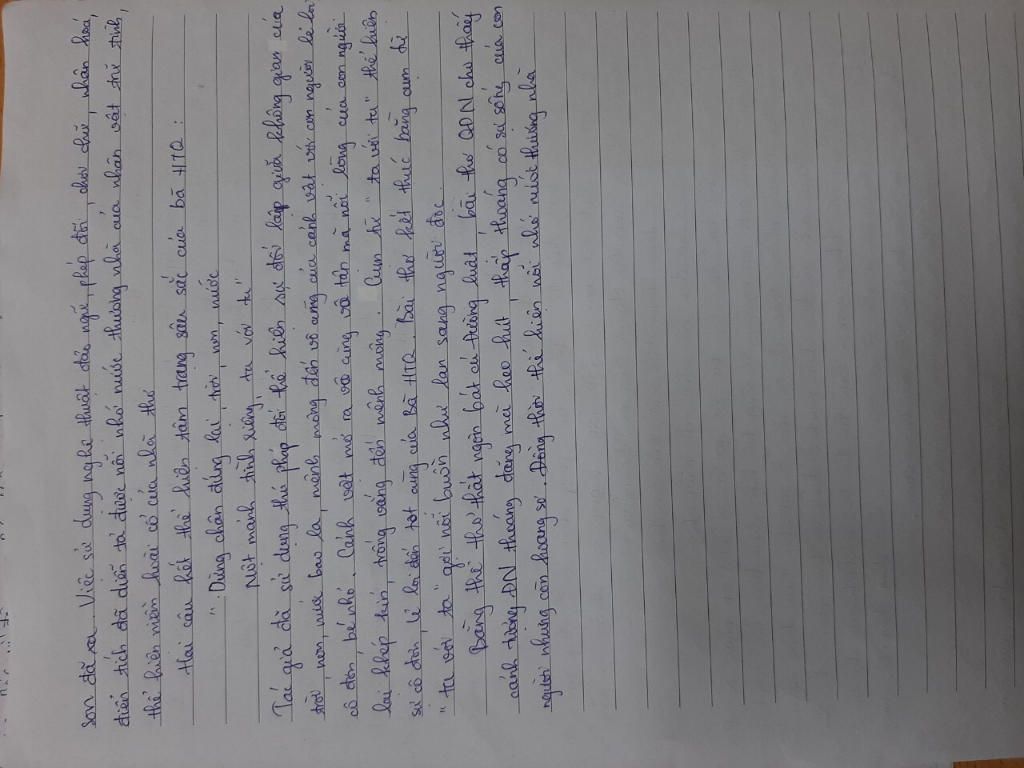 son đã sa. Việc sử dụng nghệ thuật đảo ngữ, phép đối, chơi chữ, nhân hoá,
điển tích đã diễn tả được nỗi nhớ nước thương nhà của nhân vật trữ tình,
thể hiện niềm hoài cổ của nhà thơ
Hai câu kết thể hiện tâm trạng sâu sắc của bà HTQ:
"Dừng chân đứng lại, trời, non, nước
Một mảnh tình riêng, ta với ta"
Tác giả đã sử dụng thủ pháp đối thể hiện sự đối lập giữa không gian của
trời, non, nước bao la, mênh mông đến vô cùng của cảnh vật với con người lẻ loi
cô đơn bé nhỏ. Cảnh vật mở ra vô cùng vô tận mà nỗi lòng của con người
lại khép kín, trống vắng đến mênh mông. Cụm từ "ta với ta" thể hiện
sự cô đơn, lẻ loi đến tột cùng của Bà HTQ. Bài thơ kết thúc bằng cụm từ
"ta với ta" gợi nỗi buồn như lan sang người đọc.
Bằng thể thơ thất ngôn bát cú đường luật, bài thơ QĐN cho thấy
cảnh tượng ĐN thoáng đãng mà heo hút, thấp thoáng có sự sống của con
người nhưng còn hoang sơ. Đồng thời thể hiện nỗi nhớ nước thương nhà